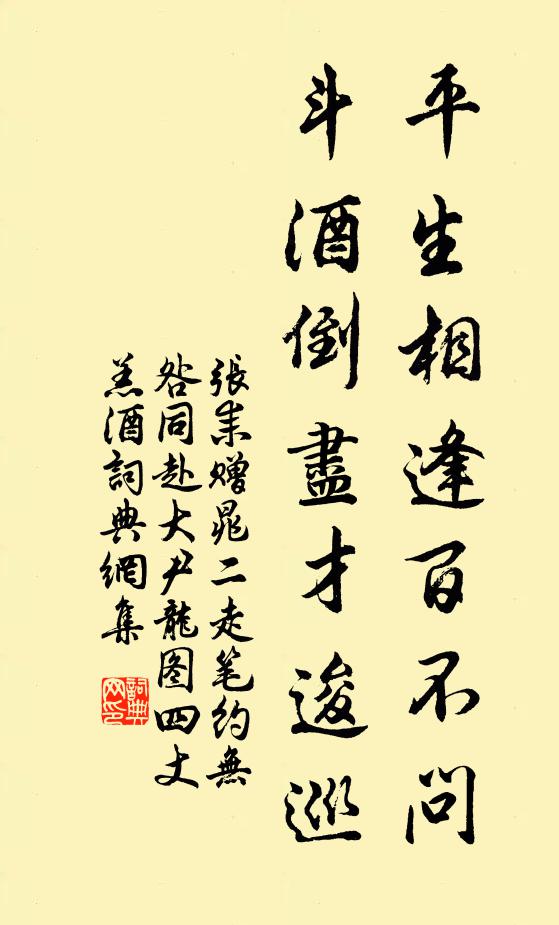 平生相逢百不問
斗酒倒盡才逡巡
張耒贈晁二走笔約無
咎同赴大尹龍图四丈
羔酒詞典網集
詞典
网印